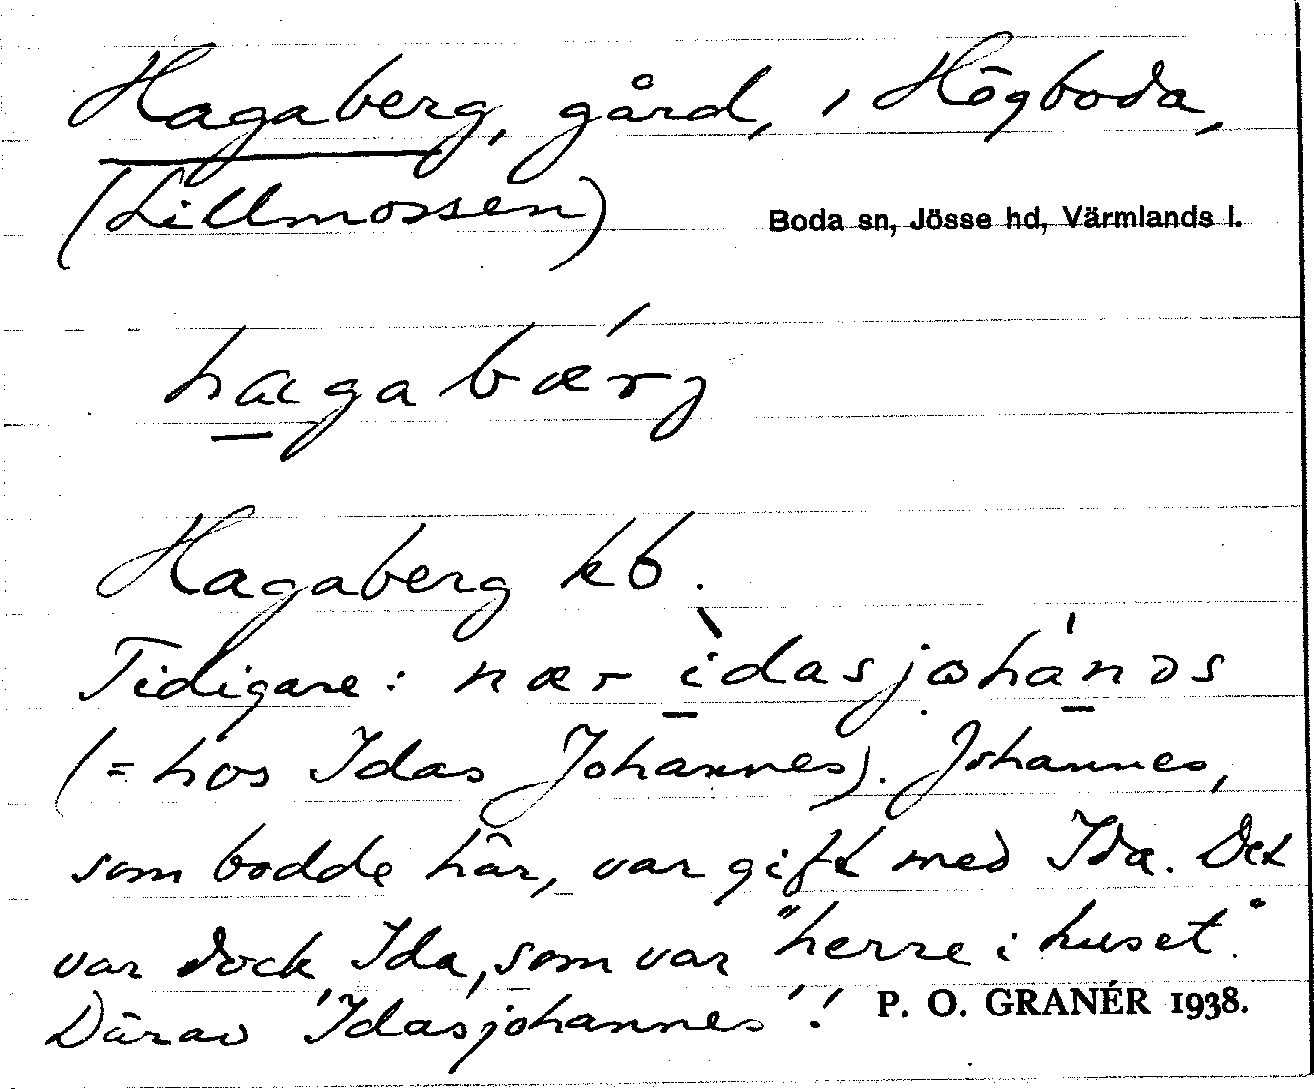 Hagaberg, gård, i Högboda,
(Lillmossen)
Boda sn, Jösse hd, Värmlands l.
hagabærj
Hagaberg kb.
Tidigare: nær ìdasjohánəs
(= hos Idas Johannes). Johannes,
som bodde här, var gift med Ida. Det
var dock Ida, som var "herre i huset".
Därav 'Idasjohannes'!
P. O. GRANÉR 1938.